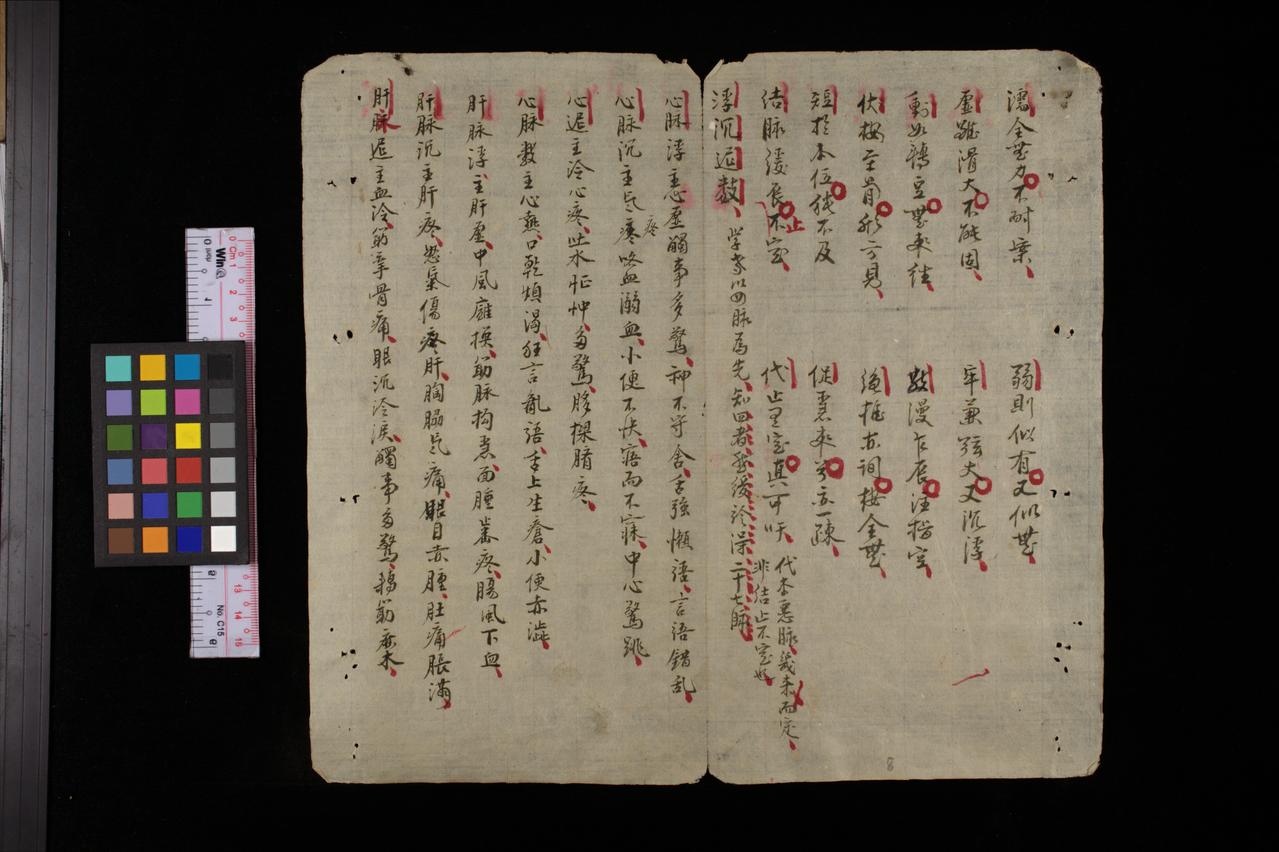 濡全無力不耐案
弱則似有又似無
虛雖滑大不能固
牢兼弦大又沉浮
動如鶉豆無來往
散漫乍辰注指空
伏按至骨形方見
絶推亦詢按全無
短於本位然不及
促急來兮亦一疎
結脉緩長不定
止
代止更定真可吁
代本惡脉幾来而定
非結止不定也
浮沉迟数
學者以四脉為先知四者然後診深二十七脉
心脉浮主心虛觸事多驚神不守舍舌強懶語言語錯乱
心脉沉主气疼咯血溺血小便不快寤而不寐中心驚跳
疼
心迟主冷心疼吐水怔忡多驚
心脉数主心熱口乾煩渴狂言亂語舌上生瘡小便赤澁
肝脉浮主肝虛中風癱換筋脉拘急面腫番疼腸風下血
肝脉沉主肝疼怒氣傷疼肝胸脇气痛眼目赤腫肚痛脹滿
肝脉迟主血冷筋拿骨痛眼沉冷淚觸事多驚
8